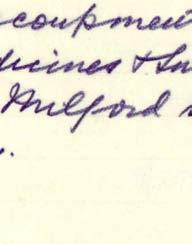 coupment
dicines & Su
Milford